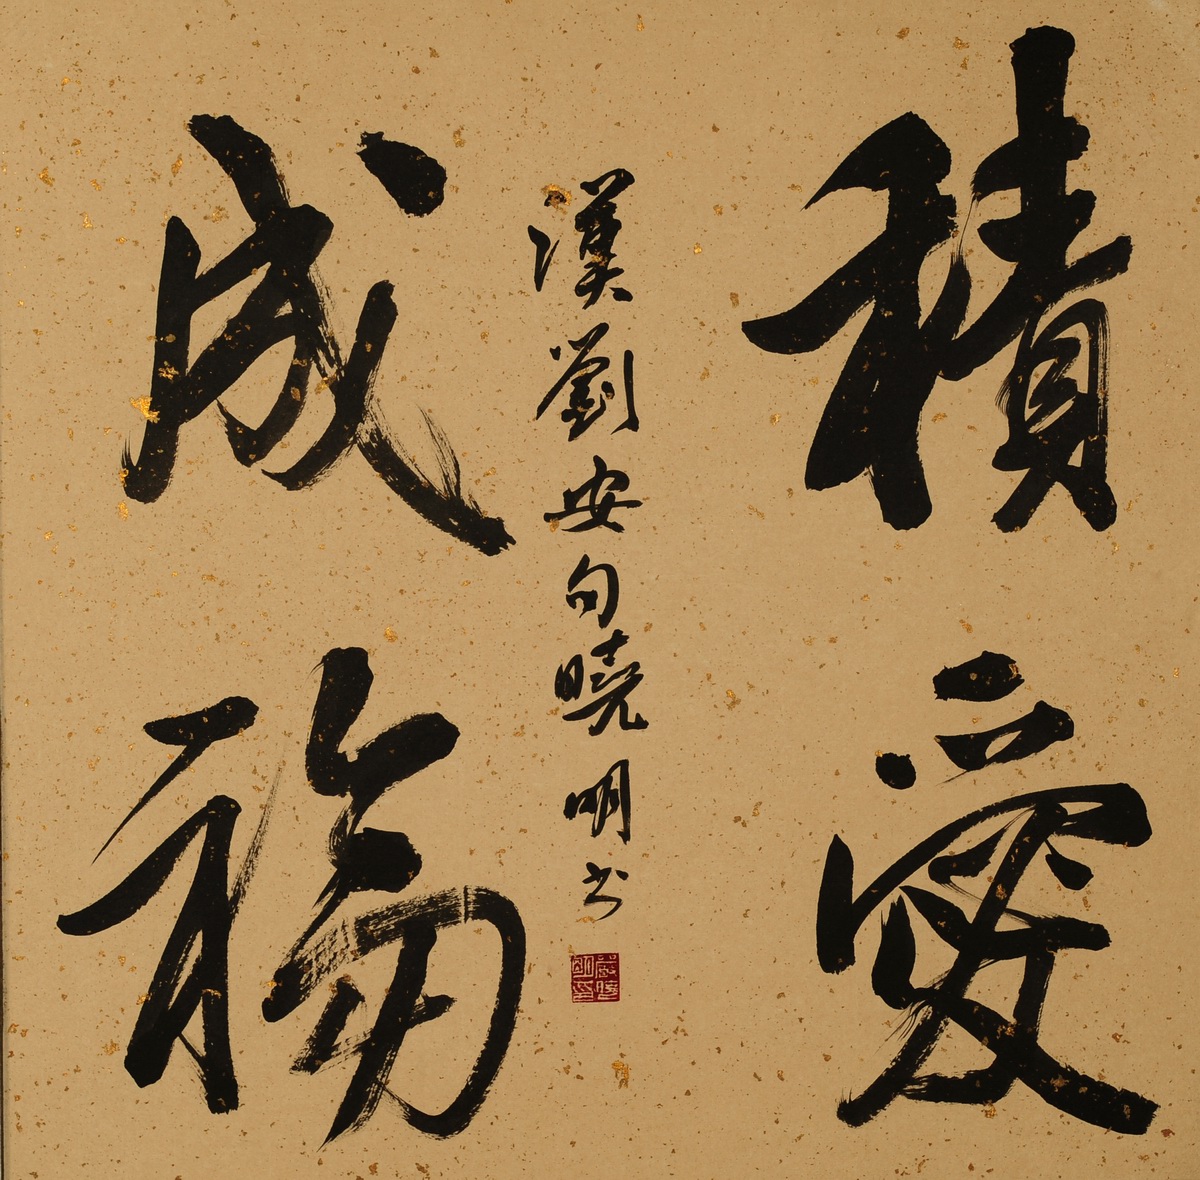 積愛
成福
漢劉安句曉明书